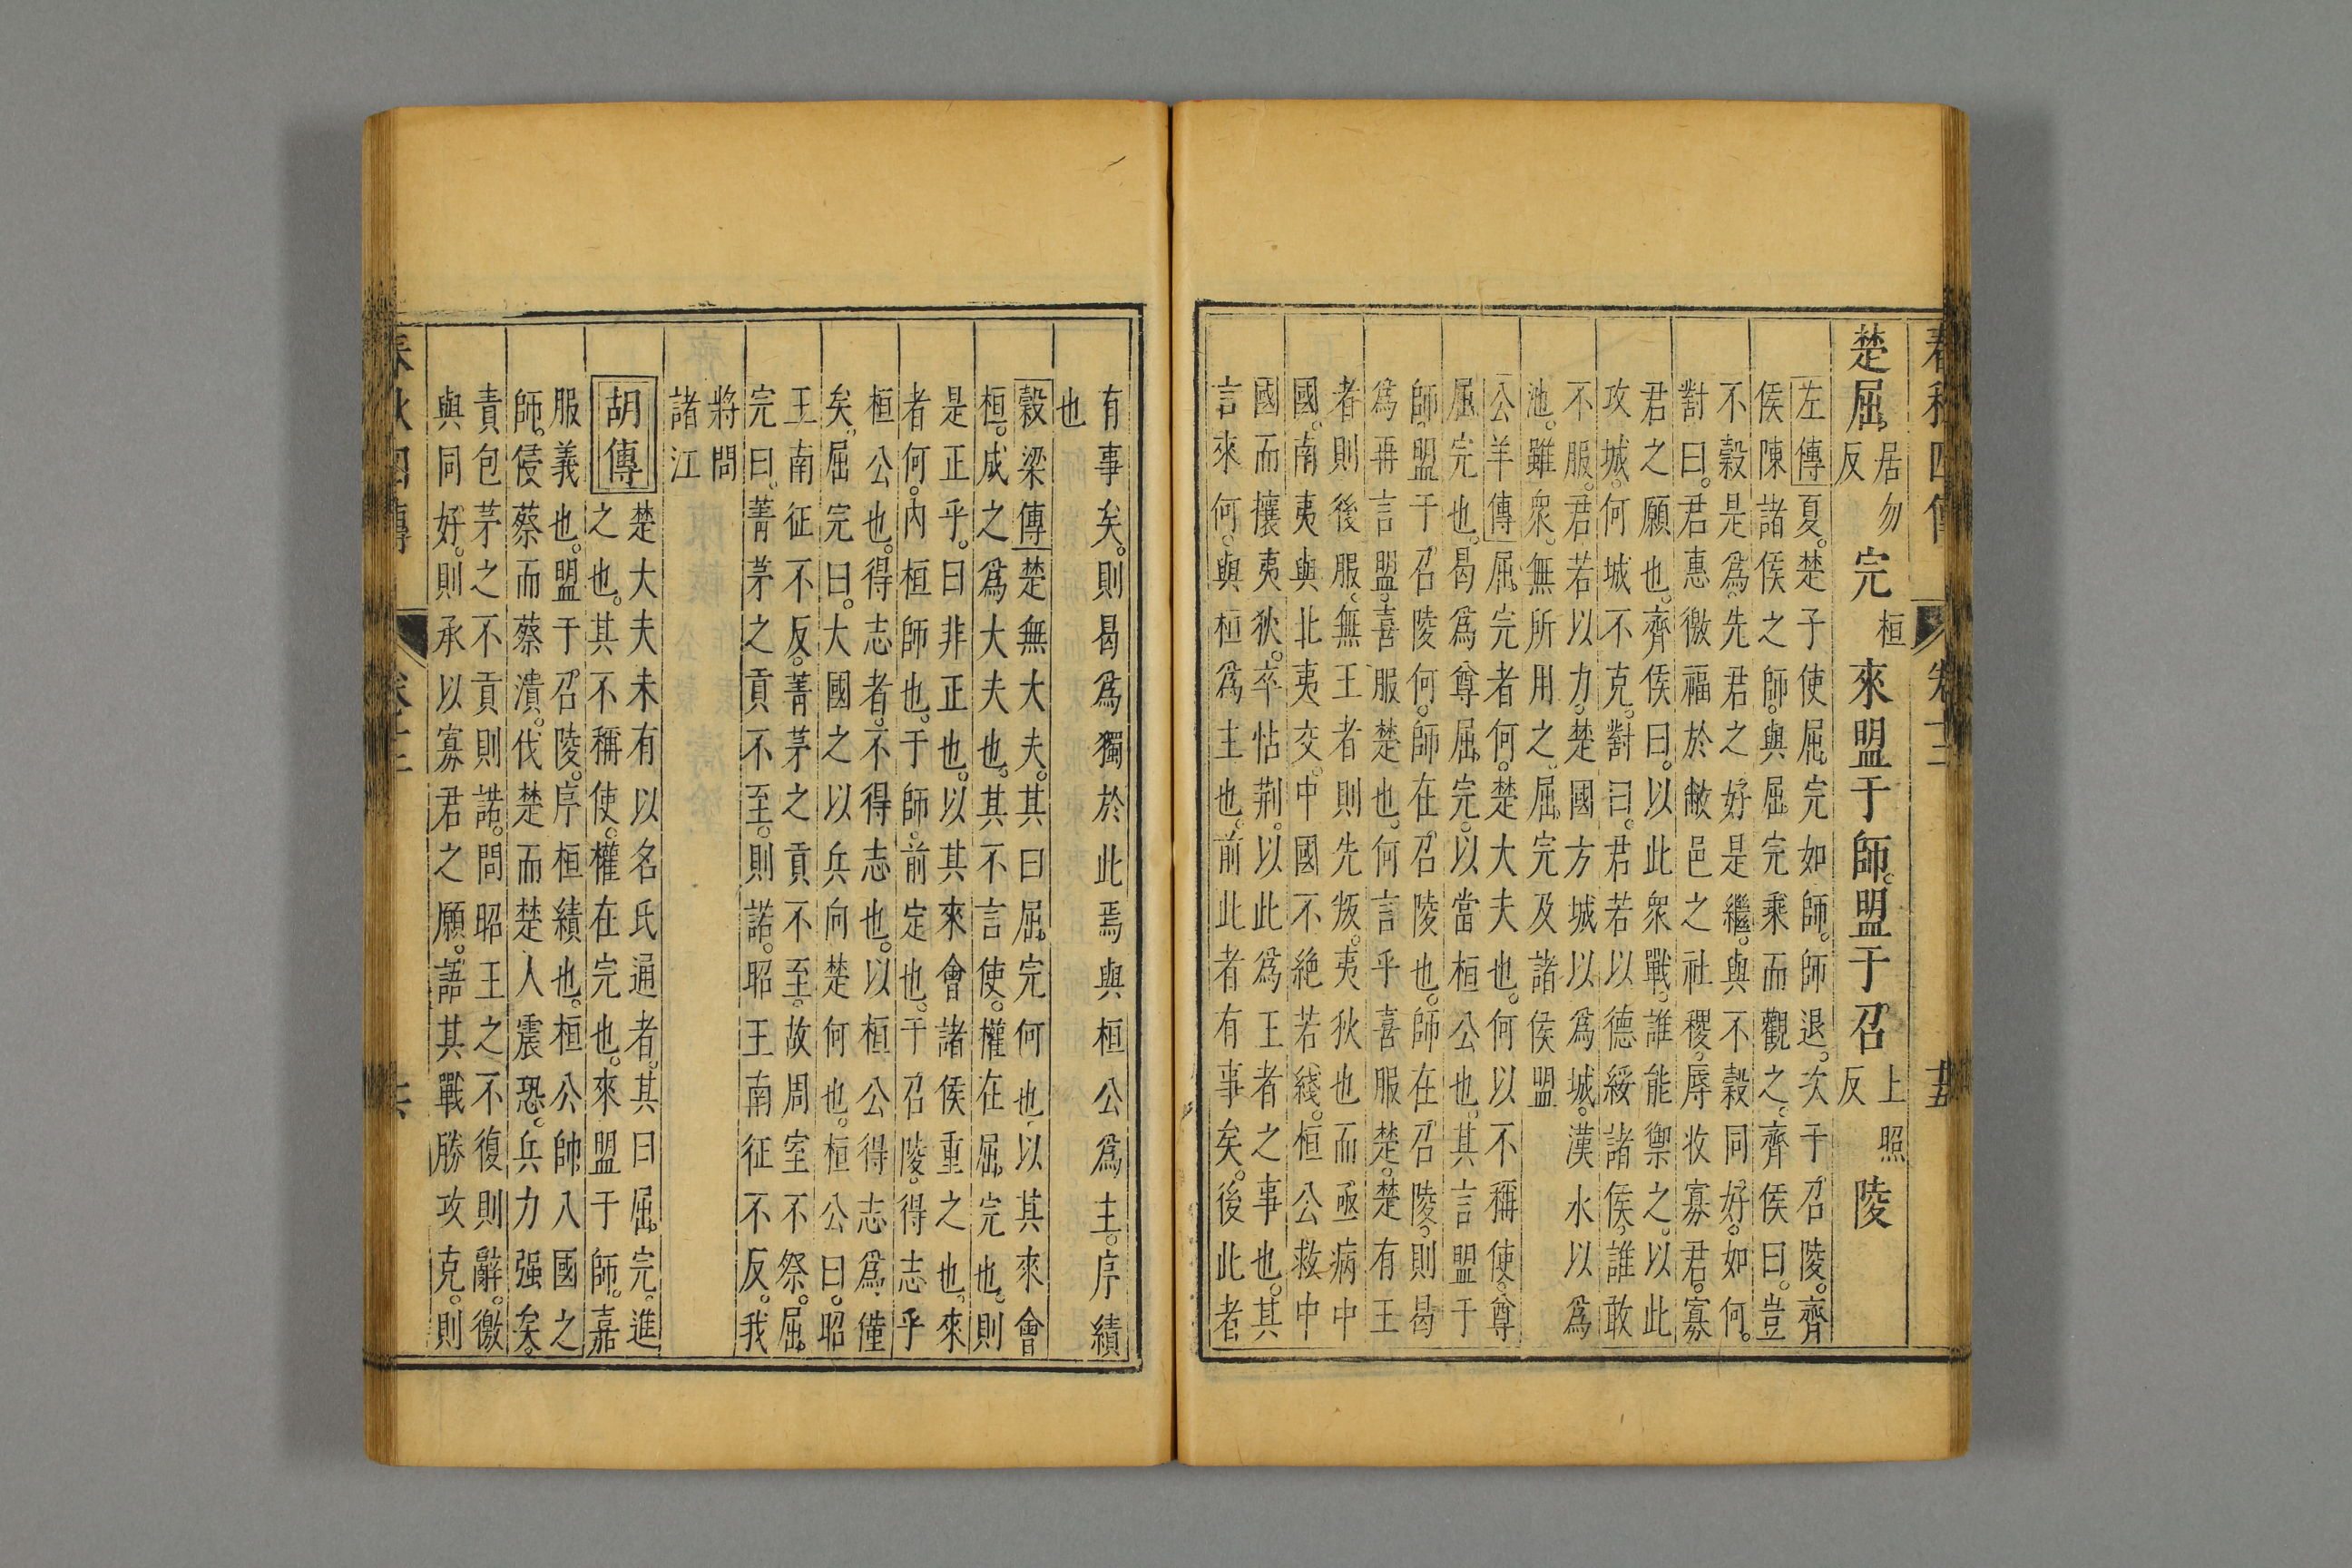 春秋四傳 卷十二 十五
楚屈居勿反完桓來盟于師。盟于召上照反陵
左傳夏。楚子使屈完如師。師退。次于召陵。齊
侯陳諸侯之師。與屈完乘而觀之。齊侯曰。豈
不穀是爲。先君之好是繼。與不穀同好。如何。
對曰。君惠徼福於敝邑之社稷。辱收寡君。寡
君之願也。齊侯曰。以此衆戰。誰能禦之。以此
攻城。何城不克。對曰。君若以德綏諸侯。誰敢
不服。君若以力。楚國方城以爲城。漢水以爲
池。雖衆。無所用之。屈完及諸侯盟
公羊傳屈完者何。楚大夫也。何以不稱使。尊
屈完也。曷爲尊屈完。以當桓公也。其言盟于
師。盟于召陵何。師在召陵也。師在召陵。則曷
爲再言盟。喜服楚也。何言乎喜服楚。楚有王
者則後服。無王者則先叛。夷狄也而亟病中
國。南夷與北夷交。中國不絶若綫。桓公救中
國而攘夷狄。卒怗荆。以此爲王者之事也。其
言來何。與桓爲主也。前此者有事矣。後此者
有事矣。則曷爲獨於此焉與桓公爲主。序績
也
穀梁傳楚無大夫。其曰屈完何也。以其來會
桓。成之爲大夫也。其不言使。權在屈完也。則
是正乎。曰非正也。以其來會諸侯重之也。來
者何。内桓師也。于師。前定也。于召陵。得志乎
桓公也。得志者。不得志也。以桓公得志爲僅
矣。屈完曰。大國之以兵向楚何也。桓公曰。昭
王南征不反。菁茅之貢不至。故周室不祭。屈
完曰。菁茅之貢不至。則諾。昭王南征不反。我
將問
諸江
胡傳楚大夫未有以名氏通者。其曰屈完。進
之也。其不稱使。權在完也。來盟于師。嘉
服義也。盟于召陵。序桓績也。桓公帥八國之
師。侵蔡而蔡潰。伐楚而楚人震恐。兵力强矣。
責包茅之不貢則諾。問昭王之不復則辭。徼
與同好。則承以寡君之願。語其戰勝攻克。則
春秋四傳 卷十二 十六